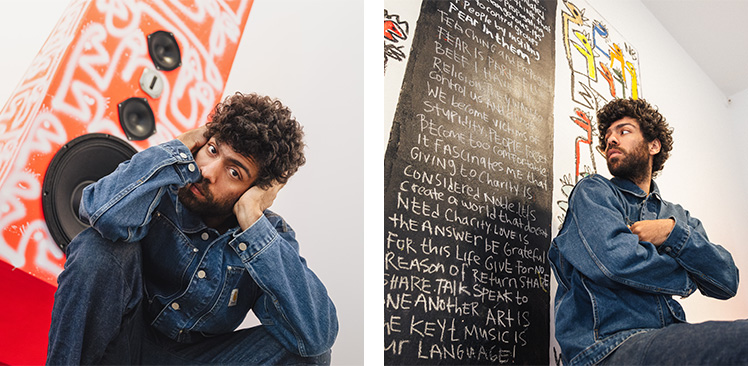 People by instilling
FEAR in them
TEACHING
FEAR IS PART OF
BEEF
RELIGION
CONTROL US
WE become VICTIMS OF
STUPIDITY PEOPLE
become too comfortable
IT fascinates me that
GIVING to CHARITY IS
CONSIDERED Noble let's
create a world that doesnt
NEED CHARITY LOVE is
the ANSWER BE Grateful
FOR this LIFE GIVE FOR NO
REASON OF RETURN SHARE
SHARE.TALK SPEAK to
ONE ANOTHER ART IS
the KEY! MUSIC IS
our LANGUAGE!